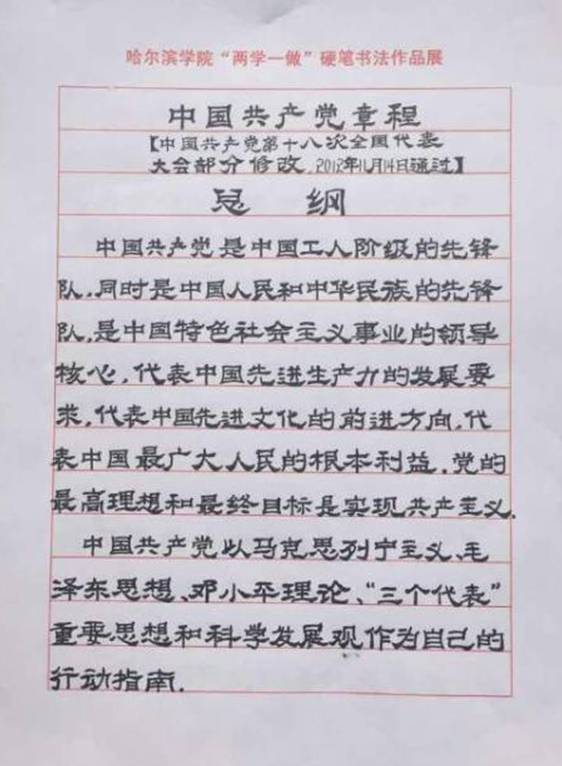 哈尔滨学院“两学一做”硬笔书法作品展
中国共产党章程
【中国共产党第十八次全国代表
大会部分修改,2012年11月14日通过】
总 纲
中国共产党是中国工人阶级的先锋
队,同时是中国人民和中华民族的先锋
队,是中国特色社会主义事业的领导
核心,代表中国先进生产力的发展要
求,代表中国先进文化的前进方向,代
表中国最广大人民的根本利益.党的
最高理想和最终目标是实现共产主义.
中国共产党以马克思列宁主义、毛
泽东思想、邓小平理论、“三个代表”
重要思想和科学发展观作为自己的
行动指南.